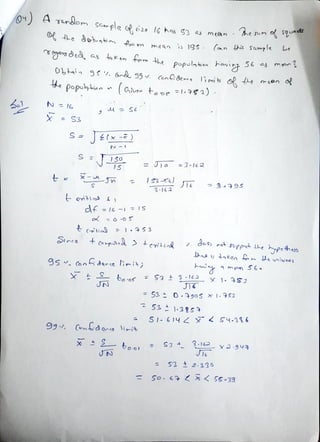 Q4) A random sample of size 16 has 53 as mean. The sum of squares
of the deviation from mean is 135. Can this sample be
regarded as taken from the population having 56 as mean?
Obtain 95% and 99% confidence limits of the mean of
the population (Given t0.05 = 1.753)
Sol N = 16 , μ = 56
x̄ = 53
S = √ Σ(x - x̄)
N - 1
S = √ 150
15 = √10 = 3.162
t = x̄ - μ
S √n = |53-56|
3.162 √16 = 3.795
t critical is
df = 16 - 1 = 15
α = 0.05
t critical = 1.753
Since t computed > t critical ∴ does not support the hypothesis
that is taken from the universe
having a mean 56.
95% confidence limits
x̄ ± S
√N t0.05 = 53 ± 3.162
√16 × 1.753
= 53 ± 0.7905 × 1.753
= 53 ± 1.3857
= 51.614 < x̄ < 54.386
99% Confidence limit
x̄ ± S
√N t0.01 = 53 ± 3.162
√16 × 2.947
= 53 ± 2.330
= 50.67 < x̄ < 55.33